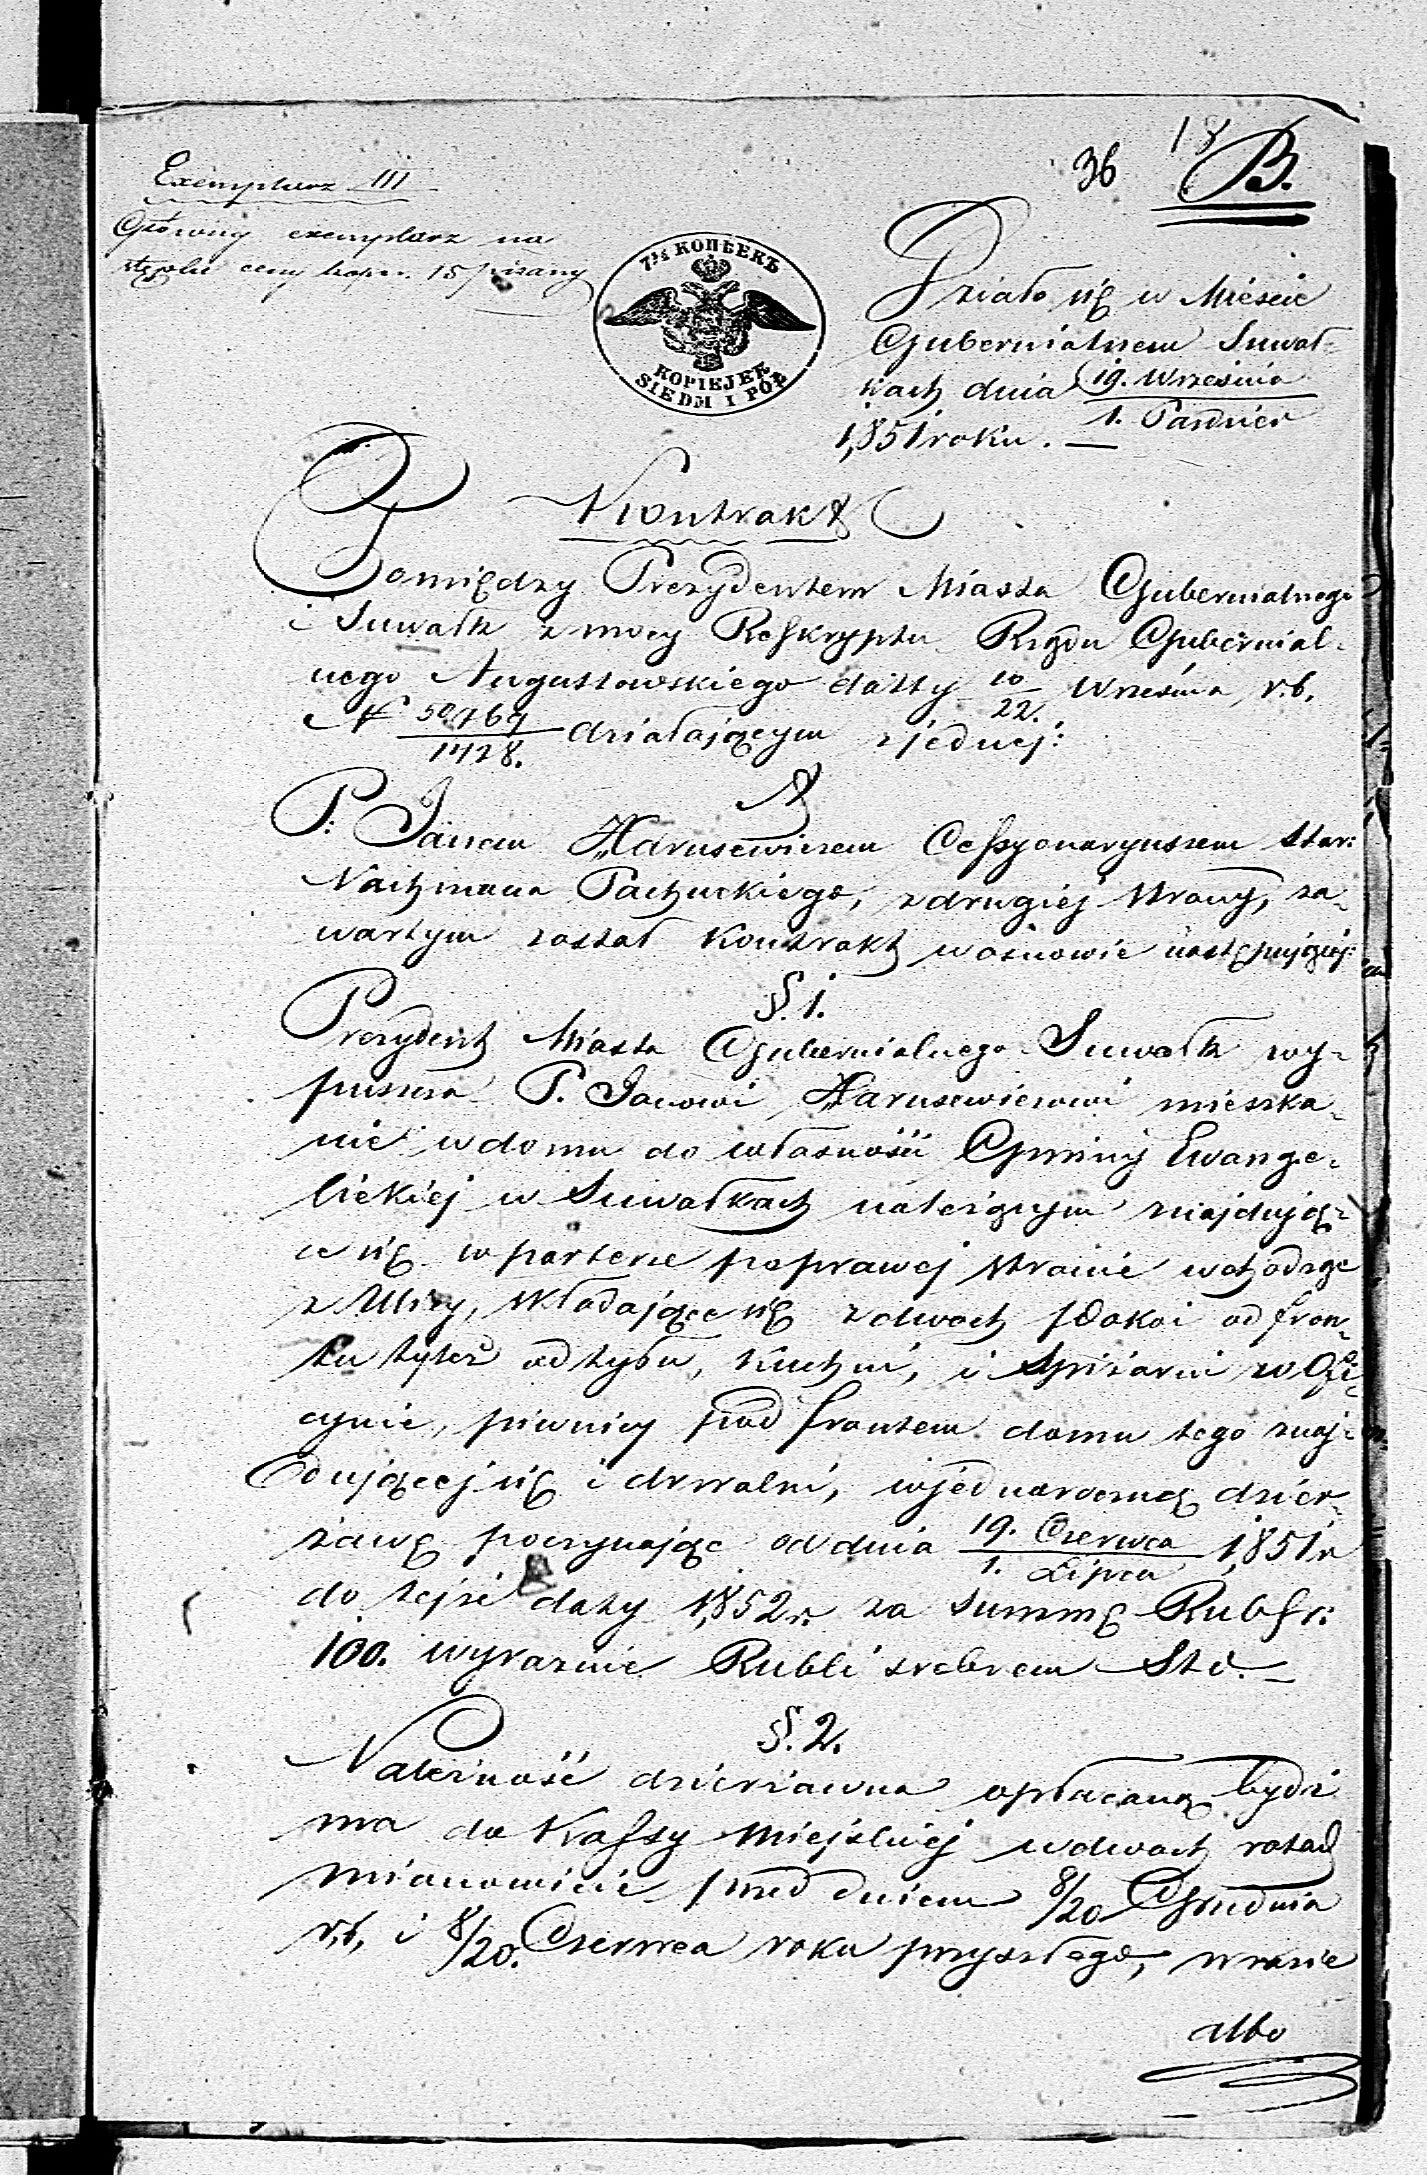 18
36 B.
Exemplarz III
Główny exemplarz na
stęplu ceny kopr. 15 pisany
7½ КОПѢЕКЪ
KOPIEJEK
SIEDM I PÓŁ
Działo się w Mieście
Gubernialnem Suwał-
kach dnia 19. Września
1. Paździer
1851 roku. —
Kontrakt
Pomiędzy Prezydentem Miasta Gubernialnego
Suwałk z mocy Reskryptu Rządu Gubernial-
nego Augustowskiego datty 10/22. Września r. b.
N 50767/1428. działającym z jednej:
A
P. Janem Harusewiczem Cessyonaryuszem Star:
Nachmana Pachuckiego, z drugiej strony, za-
wartym został Kontrakt w osnowie następującej:
§. 1.
Prezydent Miasta Gubernialnego Suwałk wy-
puszcza P. Janowi Harusewiczowi mieszka-
nie w domu do własności Gminy Ewange-
lickiej w Suwałkach należącym znajdują-
ce się w parterze po prawej stronie wchodząc
z Ulicy, składające się z dwóch pokoi od fron-
tu tyleż od tyłu, kuchni, i spiżarni w Ofi-
cynie, piwnicy pod frontem domu tego znaj-
dującej się i drwalni, w jednoroczną dzier-
żawę poczynając od dnia 19. Czerwca / 1. Lipca 1851 r.
do tejże daty 1852 r. za summę Rub sr:
100. wyraźnie Rubli srebrem Sto. —
§. 2.
Należność dzierżawna opłacaną bydź
ma do Kassy Miejskiej w dwóch ratach
mianowicie przed dniem 8/20 Grudnia
r. b. i 8/20. Czerwca roku przyszłego, w razie
albo